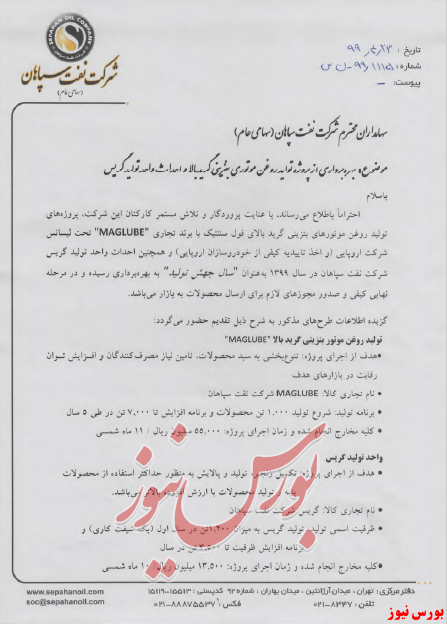 SEPAHAN OIL COMPANY
شرکت نفت سپاهان
(سهامی عام)
تاریخ : ۹۹/۴/۲۳
شماره :
پیوست : –
سهامداران محترم شرکت نفت سپاهان (سهامی عام)
موضوع : بهره‌برداری از پروژه تولید روغن موتوری بنزینی گرید بالا و احداث واحد تولید گریس
باسلام
احتراماً باطلاع می‌رساند، با عنایت پروردگار و تلاش مستمر کارکنان این شرکت، پروژه‌های
تولید روغن موتورهای بنزینی گرید بالای فول سنتتیک با برند تجاری "MAGLUBE" تحت لیسانس
شرکت اروپایی (و اخذ تاییدیه کیفی از خودروسازان اروپایی) و همچنین احداث واحد تولید گریس
شرکت نفت سپاهان در سال ۱۳۹۹ به‌عنوان "سال جهش تولید" به بهره‌برداری رسیده و در مرحله
نهایی کیفی و صدور مجوزهای لازم برای ارسال محصولات به بازار می‌باشد.
گزیده اطلاعات طرح‌های مذکور به شرح ذیل تقدیم حضور می‌گردد:
تولید روغن موتور بنزینی گرید بالا "MAGLUBE"
• هدف از اجرای پروژه: تنوع‌بخشی به سبد محصولات، تامین نیاز مصرف‌کنندگان و افزایش توان
رقابت در بازارهای هدف
• نام تجاری کالا: MAGLUBE شرکت نفت سپاهان
• برنامه تولید: شروع تولید ۱,۰۰۰ تن محصولات و برنامه افزایش تا ۷,۰۰۰ تن در طی ۵ سال
• کلیه مخارج انجام شده و زمان اجرای پروژه: ۵۵,۰۰۰ میلیون ریال / ۱۱ ماه شمسی
واحد تولید گریس
• هدف از اجرای پروژه: تکمیل زنجیره تولید و پالایش به منظور حداکثر استفاده از محصولات
پایه و تولید محصولات با ارزش افزوده بالاتر می‌باشد.
• نام تجاری کالا: گریس شرکت نفت سپاهان
• ظرفیت اسمی تولید: تولید گریس به میزان ۱,۲۰۰ تن در سال اول (یک شیفت کاری) و
برنامه افزایش ظرفیت تا ۳,۵۰۰ تن در سال
• کلیه مخارج انجام شده و زمان اجرای پروژه: ۱۳,۵۰۰ میلیون ریال / ۱۰ ماه شمسی
بورس نیوز
www.sepahanoil.com
soc@sepahanoil.com
دفتر مرکزی : تهران ، میدان آرژانتین ، میدان بهاران ، شماره ۹۲ کدپستی : ۱۵۵۱۳-۱۵۱۱۹
تلفن : ۸۳۴۷-۰۲۱ فکس : ۸۸۸۷۵۵۳۷-۰۲۱
بورس نیوز